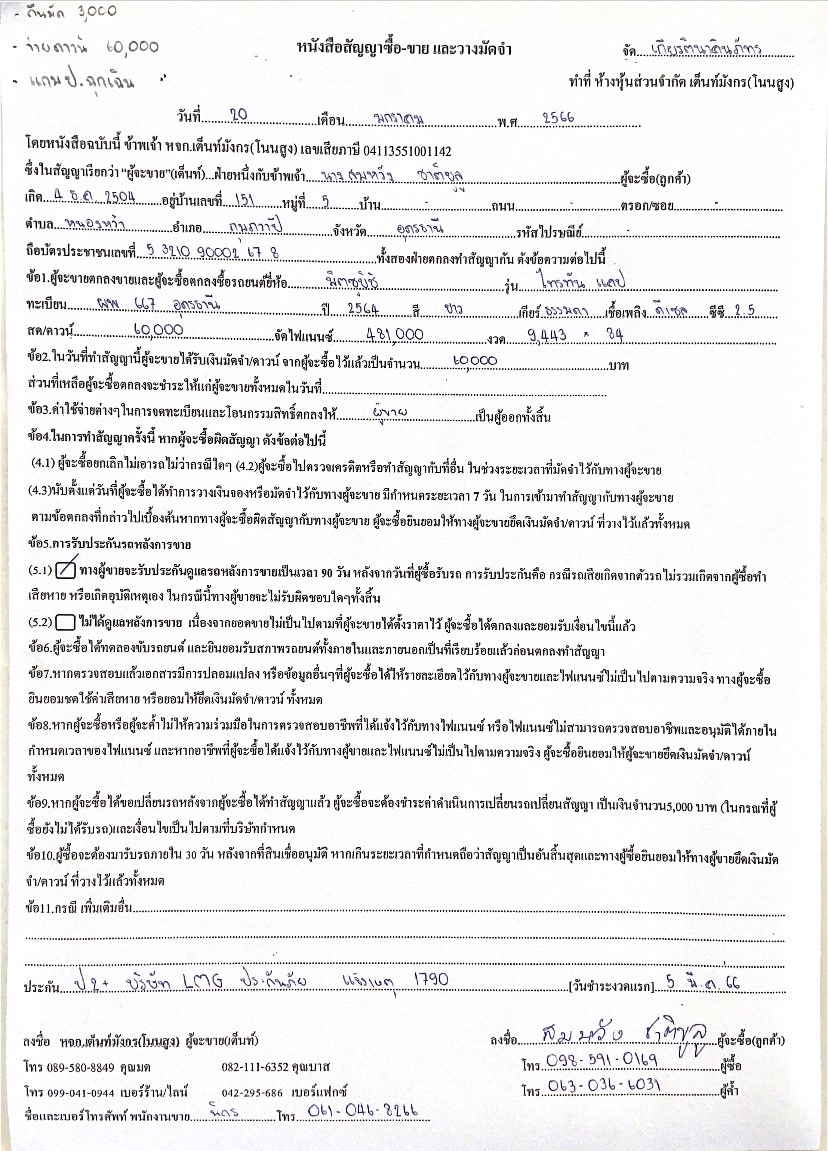 - คืนมัด 3,000
- จ่ายดาวน์ 60,000
- แถมป.ฉุกเฉิน
หนังสือสัญญาซื้อ-ขาย และวางมัดจำ
จัด เกียรตินาคินภัทร
ทำที่ ห้างหุ้นส่วนจำกัด เต็นท์มังกร(โนนสูง)
วันที่ 20 เดือน มกราคม พ.ศ 2566
โดยหนังสือฉบับนี้ ข้าพเจ้า หจก.เต็นท์มังกร(โนนสูง) เลขเสียภาษี 04113551001142
ซึ่งในสัญญาเรียกว่า "ผู้จะขาย"(เต็นท์)...ฝ่ายหนึ่งกับข้าพเจ้า นางสมหวัง ชาติชูลู ผู้จะซื้อ(ลูกค้า)
เกิด 4 ธ.ค. 2504 อยู่บ้านเลขที่ 151 หมู่ที่ 5 บ้าน ถนน ตรอก/ซอย
ตำบล หนองหว้า อำเภอ กุมภวาปี จังหวัด อุดรธานี รหัสไปรษณีย์
ถือบัตรประชาชนเลขที่ 5 3210 90002 67 8 ทั้งสองฝ่ายตกลงทำสัญญากัน ดังข้อความต่อไปนี้
ข้อ1.ผู้จะขายตกลงขายและผู้จะซื้อตกลงซื้อรถยนต์ยี่ห้อ มิตซูบิชิ รุ่น ไทรทัน แคป
ทะเบียน ผผ 667 อุดรธานี ปี 2564 สี ขาว เกียร์ ธรรมดา เชื้อเพลิง ดีเซล ซีซี 2.5
สด/ดาวน์ 60,000 จัดไฟแนนซ์ 481,000 งวด 9,443 × 84
ข้อ2.ในวันที่ทำสัญญานี้ผู้จะขายได้รับเงินมัดจำ/ดาวน์ จากผู้จะซื้อไว้แล้วเป็นจำนวน 60,000 บาท
ส่วนที่เหลือผู้จะซื้อตกลงจะชำระให้แก่ผู้จะขายทั้งหมดในวันที่
ข้อ3.ค่าใช้จ่ายต่างๆในการจดทะเบียนและโอนกรรมสิทธิ์ตกลงให้ ผู้ขาย เป็นผู้ออกทั้งสิ้น
ข้อ4.ในการทำสัญญาครั้งนี้ หากผู้จะซื้อผิดสัญญา ดังข้อต่อไปนี้
(4.1) ผู้จะซื้อยกเลิกไม่เอารถไม่ว่ากรณีใดๆ (4.2)ผู้จะซื้อไปตรวจเครดิตหรือทำสัญญากับที่อื่น ในช่วงระยะเวลาที่มัดจำไว้กับทางผู้จะขาย
(4.3)นับตั้งแต่วันที่ผู้จะซื้อได้ทำการวางเงินจองหรือมัดจำไว้กับทางผู้จะขาย มีกำหนดระยะเวลา 7 วัน ในการเข้ามาทำสัญญากับทางผู้จะขาย
ตามข้อตกลงที่กล่าวไปเบื้องต้นหากทางผู้จะซื้อผิดสัญญากับทางผู้จะขาย ผู้จะซื้อยินยอมให้ทางผู้จะขายยึดเงินมัดจำ/ดาวน์ ที่วางไว้แล้วทั้งหมด
ข้อ5.การรับประกันรถหลังการขาย
(5.1) ทางผู้ขายจะรับประกันดูแลรถหลังการขายเป็นเวลา 90 วัน หลังจากวันที่ผู้ซื้อรับรถ การรับประกันคือ กรณีรถเสียเกิดจากตัวรถไม่รวมเกิดจากผู้ซื้อทำ
เสียหาย หรือเกิดอุบัติเหตุเอง ในกรณีนี้ทางผู้ขายจะไม่รับผิดชอบใดๆทั้งสิ้น
(5.2) ไม่ได้ดูแลหลังการขาย เนื่องจากยอดขายไม่เป็นไปตามที่ผู้จะขายได้ตั้งราคาไว้ ผู้จะซื้อได้ตกลงและยอมรับเงื่อนไขนี้แล้ว
ข้อ6.ผู้จะซื้อได้ทดลองขับรถยนต์ และยินยอมรับสภาพรถยนต์ทั้งภายในและภายนอกเป็นที่เรียบร้อยแล้วก่อนตกลงทำสัญญา
ข้อ7.หากตรวจสอบแล้วเอกสารมีการปลอมแปลง หรือข้อมูลอื่นๆที่ผู้จะซื้อได้ให้รายละเอียดไว้กับทางผู้จะขายและไฟแนนซ์ไม่เป็นไปตามความจริง ทางผู้จะซื้อ
ยินยอมชดใช้ค่าเสียหาย หรือยอมให้ยึดเงินมัดจำ/ดาวน์ ทั้งหมด
ข้อ8.หากผู้จะซื้อหรือผู้จะค้ำไม่ให้ความร่วมมือในการตรวจสอบอาชีพที่ได้แจ้งไว้กับทางไฟแนนซ์ หรือไฟแนนซ์ไม่สามารถตรวจสอบอาชีพและอนุมัติได้ภายใน
กำหนดเวลาของไฟแนนซ์ และหากอาชีพที่ผู้จะซื้อได้แจ้งไว้กับทางผู้ขายและไฟแนนซ์ไม่เป็นไปตามความจริง ผู้จะซื้อยินยอมให้ผู้จะขายยึดเงินมัดจำ/ดาวน์
ทั้งหมด
ข้อ9.หากผู้จะซื้อได้ขอเปลี่ยนรถหลังจากผู้จะซื้อได้ทำสัญญาแล้ว ผู้จะซื้อจะต้องชำระค่าดำเนินการเปลี่ยนรถเปลี่ยนสัญญา เป็นเงินจำนวน5,000 บาท (ในกรณที่ผู้
ซื้อยังไม่ได้รับรถ)และเงื่อนไขเป็นไปตามที่บริษัทกำหนด
ข้อ10.ผู้ซื้อจะต้องมารับรถภายใน 30 วัน หลังจากที่สินเชื่ออนุมัติ หากเกินระยะเวลาที่กำหนดถือว่าสัญญาเป็นอันสิ้นสุดและทางผู้ซื้อยินยอมให้ทางผู้ขายยึดเงินมัด
จำ/ดาวน์ ที่วางไว้แล้วทั้งหมด
ข้อ11.กรณี เพิ่มเติมอื่น
ประกัน ป 2+ บริษัท LMG ประกันภัย แจ้งเหตุ 1790 [วันชำระงวดแรก] 5 มี.ค. 66
ลงชื่อ หจก.เต็นท์มังกร(โนนสูง) ผู้จะขาย(เต็นท์) ลงชื่อ สมหวัง ชาติชูลู ผู้จะซื้อ(ลูกค้า)
โทร 089-580-8849 คุณมด 082-111-6352 คุณบาส โทร 098-591-0169 ผู้ซื้อ
โทร 099-041-0944 เบอร์ร้าน/ไลน์ 042-295-686 เบอร์แฟกซ์ โทร 063-036-6031 ผู้ค้ำ
ชื่อและเบอร์โทรศัพท์ พนักงานขาย นิกร โทร 061-046-8266